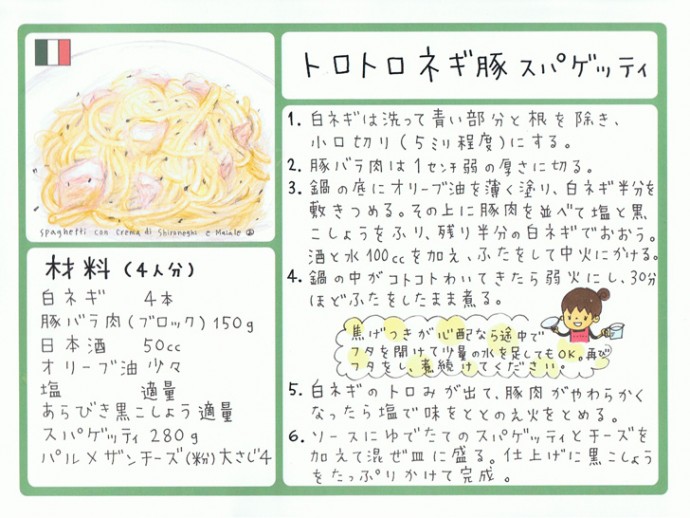 トロトロネギ豚スパゲッティ
spaghetti con crema di Shironeghi e Maiale
材料(4人分)
白ネギ 4本
豚バラ肉(ブロック)150g
日本酒 50cc
オリーブ油 少々
塩 適量
あらびき黒こしょう 適量
スパゲッティ 280g
パルメザンチーズ(粉)大さじ4
1. 白ネギは洗って青い部分と根を除き、
小口切り(5ミリ程度)にする。
2. 豚バラ肉は1センチ弱の厚さに切る。
3. 鍋の底にオリーブ油を薄く塗り、白ネギ半分を
敷きつめる。その上に豚肉を並べて塩と黒
こしょうをふり、残り半分の白ネギでおおう。
酒と水100ccを加え、ふたをして中火にかける。
4. 鍋の中がコトコトわいてきたら弱火にし、30分
ほどふたをしたまま煮る。
焦げつきが心配なら途中で
フタを開けて少量の水を足してもOK。再び
フタをし、煮続けてください。
5. 白ネギのトロみが出て、豚肉がやわらかく
なったら塩で味をととのえ火をとめる。
6. ソースにゆでたてのスパゲッティとチーズを
加えて混ぜ皿に盛る。仕上げに黒こしょう
をたっぷりかけて完成。